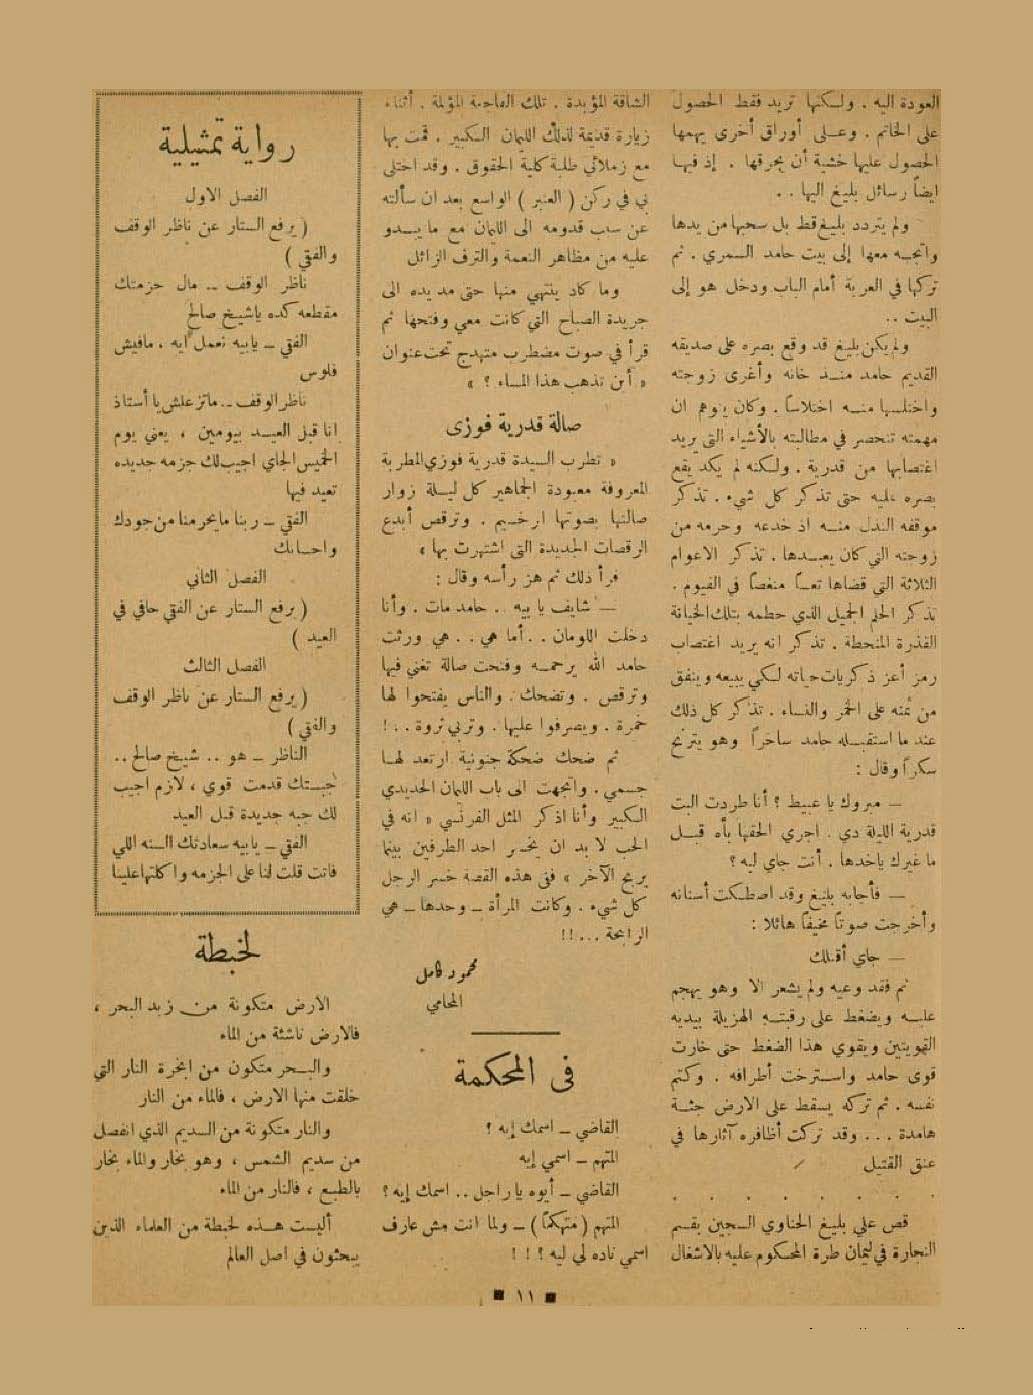 العودة اليه . ولكنها تريد فقط الحصول
على الخاتم . وعلى أوراق أخرى يهمها
الحصول عليها خشية أن يحرقها . إذ فيها
ايضاً رسائل بليغ اليها . .
ولم يتردد بليغ قط بل سحبها من يدها
واتجه معها إلى بيت حامد السمري . ثم
تركها في العربة أمام الباب ودخل هو إلى
البيت . .
ولم يكن بليغ قد وقع بصره على صديقه
القديم حامد منذ خانه وأغرى زوجته
واختلسها منه اختلاساً . وكان يتوهم ان
مهمته تنحصر في مطالبته بالأشياء التي يريد
اغتصابها من قدرية . ولكنه لم يكد يقع
بصره عليه حتى تذكر كل شيء . تذكر
موقفه النذل منه اذ خدعه وحرمه من
زوجته التي كان يعبدها . تذكر الاعوام
الثلاثة التي قضاها تعساً منغصاً في الفيوم .
تذكر الحلم الجميل الذي حطمه بتلك الخيانة
القذرة المنحطة . تذكر انه يريد اغتصاب
رمز أعز ذكريات حياته لكي يبيعه وينفق
من ثمنه على الخمر والنساء . تذكر كل ذلك
عند ما استقبله حامد ساخراً وهو يترنح
سكراً وقال :
— مبروك يا عبيط ؟ أنا طردت البت
قدرية الليلة دي . اجري الحقها بأه قبل
ما غيرك ياخدها . أنت جاي ليه ؟
— فأجابه بليغ وقد اصطكت أسنانه
وأخرجت صوتاً مخيفاً هائلا :
— جاي أقتلك
ثم فقد وعيه ولم يشعر الا وهو يهجم
عليه ويضغط على رقبته الهزيلة بيديه
القويتين ويقوي هذا الضغط حتى خارت
قوى حامد واسترخت أطرافه . وكتم
نفسه . ثم تركه يسقط على الارض جثة
هامدة . . . وقد تركت أظافره آثارها في
عنق القتيل
. . . . . . . . .
قص علي بليغ الحناوي السجين بقسم
النجارة في ليمان طرة المحكوم عليه بالاشغال
الشاقة المؤبدة . تلك الفاجعة المؤلمة . أثناء
زيارة قديمة لذلك الليمان الكبير . قمت بها
مع زملائي طلبة كلية الحقوق . وقد اختلى
بي في ركن ( العنبر ) الواسع بعد ان سألته
عن سبب قدومه الى الليمان مع ما يبدو
عليه من مظاهر النعمة والترف الزائل
وما كاد ينتهي منها حتى مد يده الى
جريدة الصباح التي كانت معي وفتحها ثم
قرأ في صوت مضطرب متهدج تحت عنوان
« أين تذهب هذا المساء ؟ »
صالة قدرية فوزى
« تطرب السيدة قدرية فوزي المطربة
المعروفة معبودة الجماهير كل ليلة زوار
صالتها بصوتها الرخيم . وترقص أبدع
الرقصات الجديدة التي اشتهرت بها »
قرأ ذلك ثم هز رأسه وقال :
— شايف يا بيه . . حامد مات . وأنا
دخلت اللومان . . أما هي . . هي ورثت
حامد الله يرحمه وفتحت صالة تغني فيها
وترقص . وتضحك . والناس يفتحوا لها
خمرة . ويصرفوا عليها . وتربي ثروة . . !
ثم ضحك ضحكة جنونية ارتعد لها
جسمي . واتجهت الى باب الليمان الحديدي
الكبير وأنا اذكر المثل الفرنسي « انه في
الحب لا بد ان يخسر احد الطرفين بينما
يربح الآخر » ففي هذه القصة خسر الرجل
كل شيء . وكانت المرأة — وحدها — هي
الرابحة . . . !!
محمود كامل
المحامي
في المحكمة
القاضي — اسمك إيه ؟
المتهم — اسمي إيه
القاضي — أيوه يا راجل . . اسمك إيه ؟
المتهم (متهكماً) — ولما انت مش عارف
اسمي ناده لي ليه ؟ ! ! !
رواية تمثيلية
الفصل الاول
( يرفع الستار عن ناظر الوقف
والفقي )
ناظر الوقف . . مال جزمتك
مقطعه كده ياشيخ صالح
الفقي — يابيه نعمل ايه ، مافيش
فلوس
ناظر الوقف . . ماتزعلش يا أستاذ
انا قبل العيد بيومين ، يعني يوم
الخميس الجاي اجيب لك جزمه جديده
تعيد فيها
الفقي — ربنا ما يحرمنا من جودك
واحسانك
الفصل الثاني
( يرفع الستار عن الفقي حافي في
العيد )
الفصل الثالث
( يرفع الستار عن ناظر الوقف
والفقي )
الناظر — هو . . شيخ صالح . .
جبتك قدمت قوي ، لازم اجيب
لك جبه جديدة قبل العيد
الفقي — يابيه سعادتك السنه اللي
فاتت قلت لنا على الجزمه واكلتها علينا
لخبطة
الارض متكونة من زبد البحر ،
فالارض ناشئة من الماء
والبحر متكون من ابخرة النار التي
خلقت منها الارض ، فالماء من النار
والنار متكونة من السديم الذي انفصل
من سديم الشمس ، وهو بخار والماء بخار
بالطبع ، فالنار من الماء
أليست هذه لخبطة من العلماء الذين
يبحثون في اصل العالم
■ ١١ ■